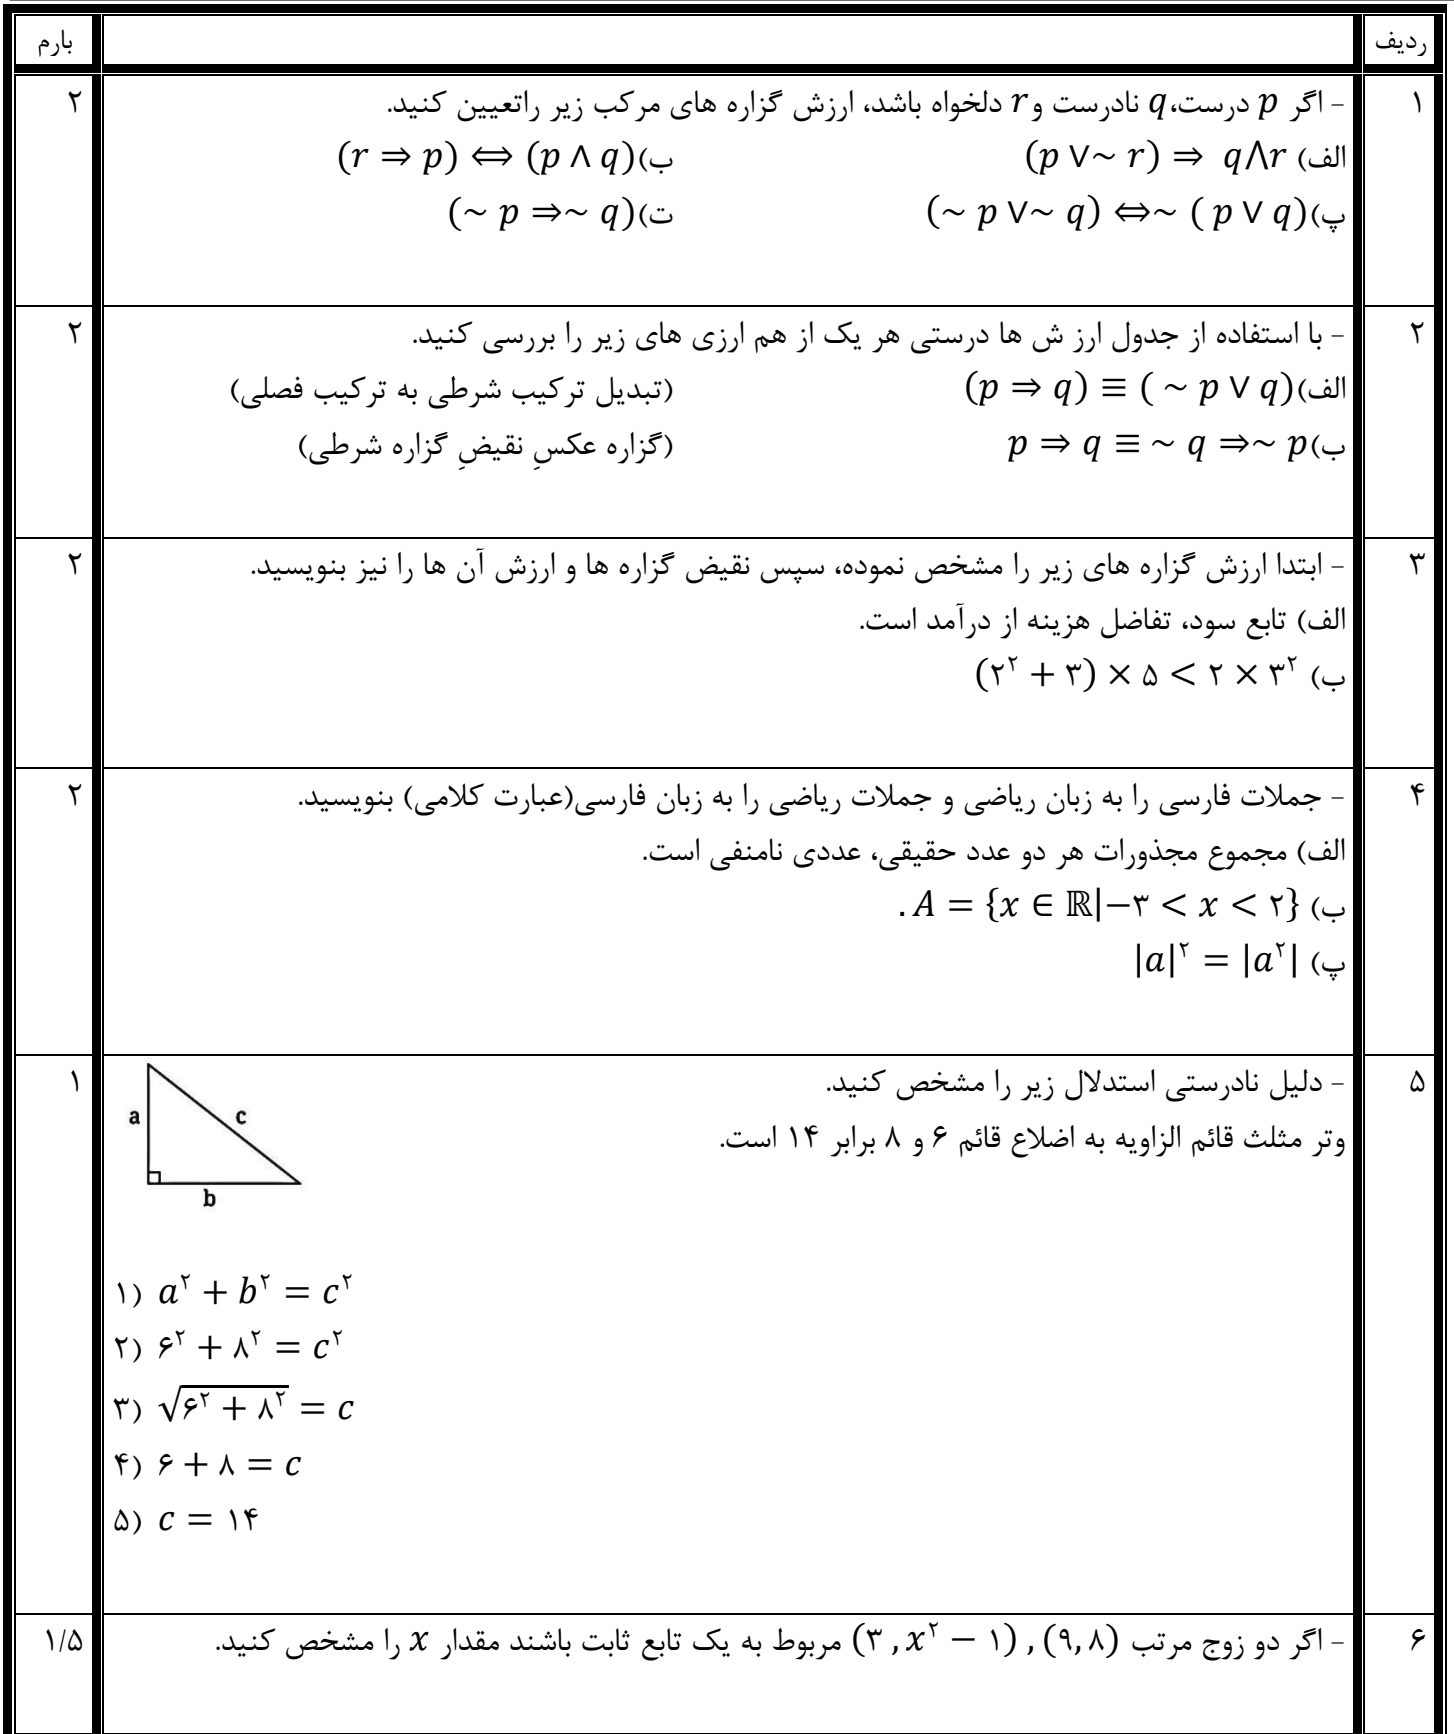 ردیف بارم
۱ - اگر p درست،q نادرست و r دلخواه باشد، ارزش گزاره های مرکب زیر راتعیین کنید. ۲
الف) (p ∨~ r) ⇒ q⋀r ب)(r ⇒ p) ⟺ (p ∧ q)
پ)(~ p ∨~ q) ⟺~ ( p ∨ q) ت)(~ p ⇒~ q)
۲ - با استفاده از جدول ارز ش ها درستی هر یک از هم ارزی های زیر را بررسی کنید. ۲
الف)(p ⇒ q) ≡ ( ~ p ∨ q) (تبدیل ترکیب شرطی به ترکیب فصلی)
ب)p ⇒ q ≡ ~ q ⇒~ p (گزاره عکسِ نقیضِ گزاره شرطی)
۳ - ابتدا ارزش گزاره های زیر را مشخص نموده، سپس نقیض گزاره ها و ارزش آن ها را نیز بنویسید. ۲
الف) تابع سود، تفاضل هزینه از درآمد است.
ب) (۲² + ۳) × ۵ < ۲ × ۳²
۴ - جملات فارسی را به زبان ریاضی و جملات ریاضی را به زبان فارسی(عبارت کلامی) بنویسید. ۲
الف) مجموع مجذورات هر دو عدد حقیقی، عددی نامنفی است.
ب) A = {x ∈ ℝ|−۳ < x < ۲} .
پ) |a|² = |a²|
۵ - دلیل نادرستی استدلال زیر را مشخص کنید. ۱
وتر مثلث قائم الزاویه به اضلاع قائم ۶ و ۸ برابر ۱۴ است.
a
c
b
۱) a² + b² = c²
۲) ۶² + ۸² = c²
۳) √(۶² + ۸²) = c
۴) ۶ + ۸ = c
۵) c = ۱۴
۶ - اگر دو زوج مرتب (۳ , x² − ۱) , (۹,۸) مربوط به یک تابع ثابت باشند مقدار x را مشخص کنید. ۱/۵